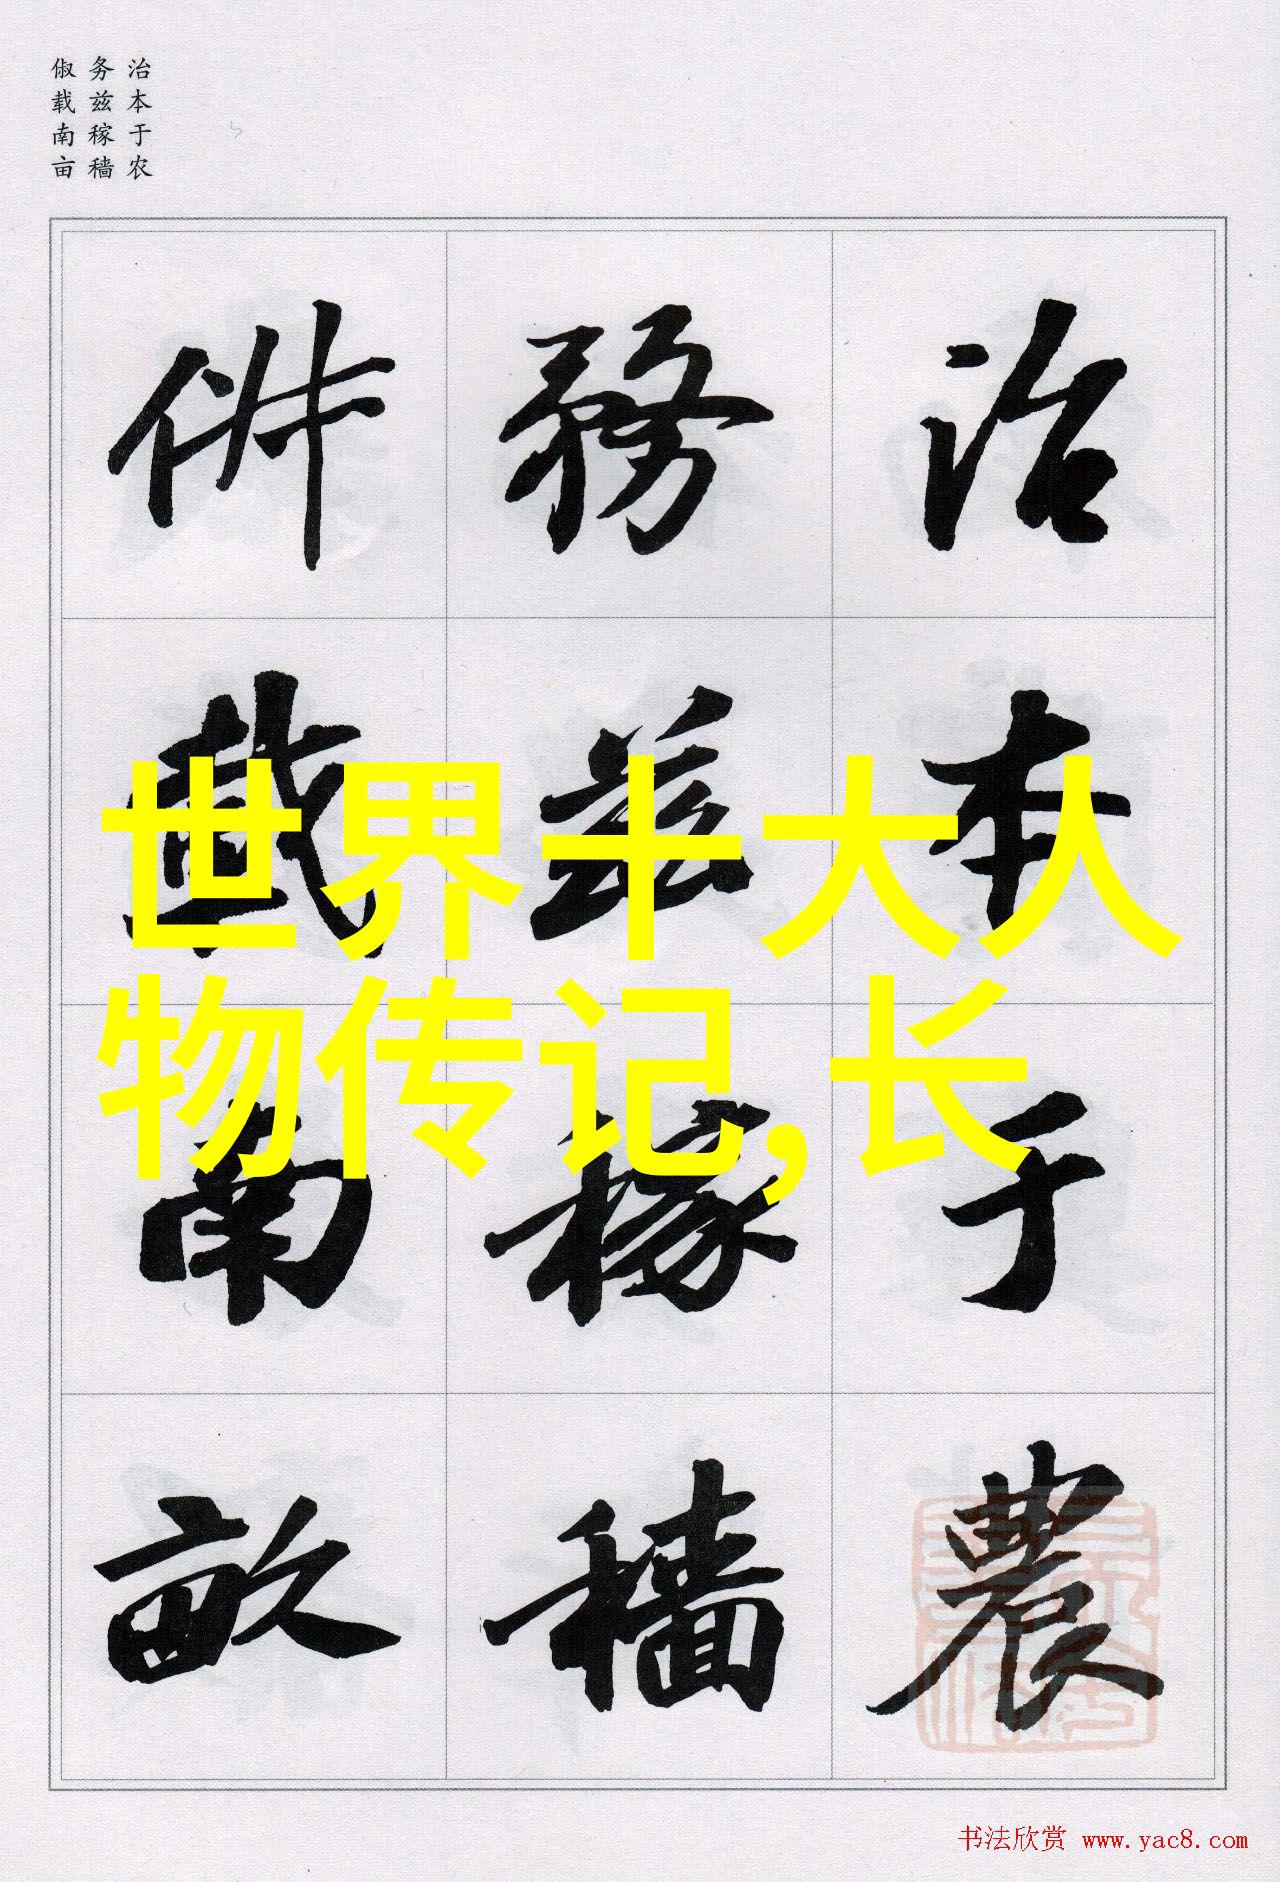 治本于农
务兹稼穑
俶载南亩
治本于農
務兹稼穡
俶載南畝
世界十大人
物传记,长
书法欣赏 www.yac8.com